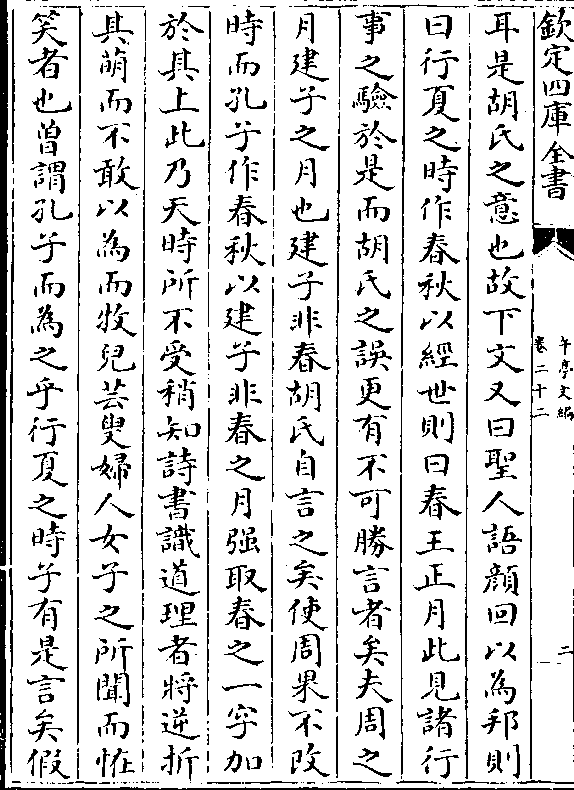 欽定四庫全書
午亭文編
卷二十二
二
耳是胡氏之意也故下文又曰聖人語顔回以為邦則
曰行夏之時作春秋以經世則曰春王正月此見諸行
事之驗於是而胡氏之誤更有不可勝言者矣夫周之
月建子之月也建子非春胡氏自言之矣使周果不改
時而孔子作春秋以建子非春之月强取春之一字加
於其上此乃天時所不受稍知詩書識道理者將逆折
其萌而不敢以為而牧兒芸叟婦人女子之所聞而恠
笑者也曾謂孔子而為之乎行夏之時子有是言矣假